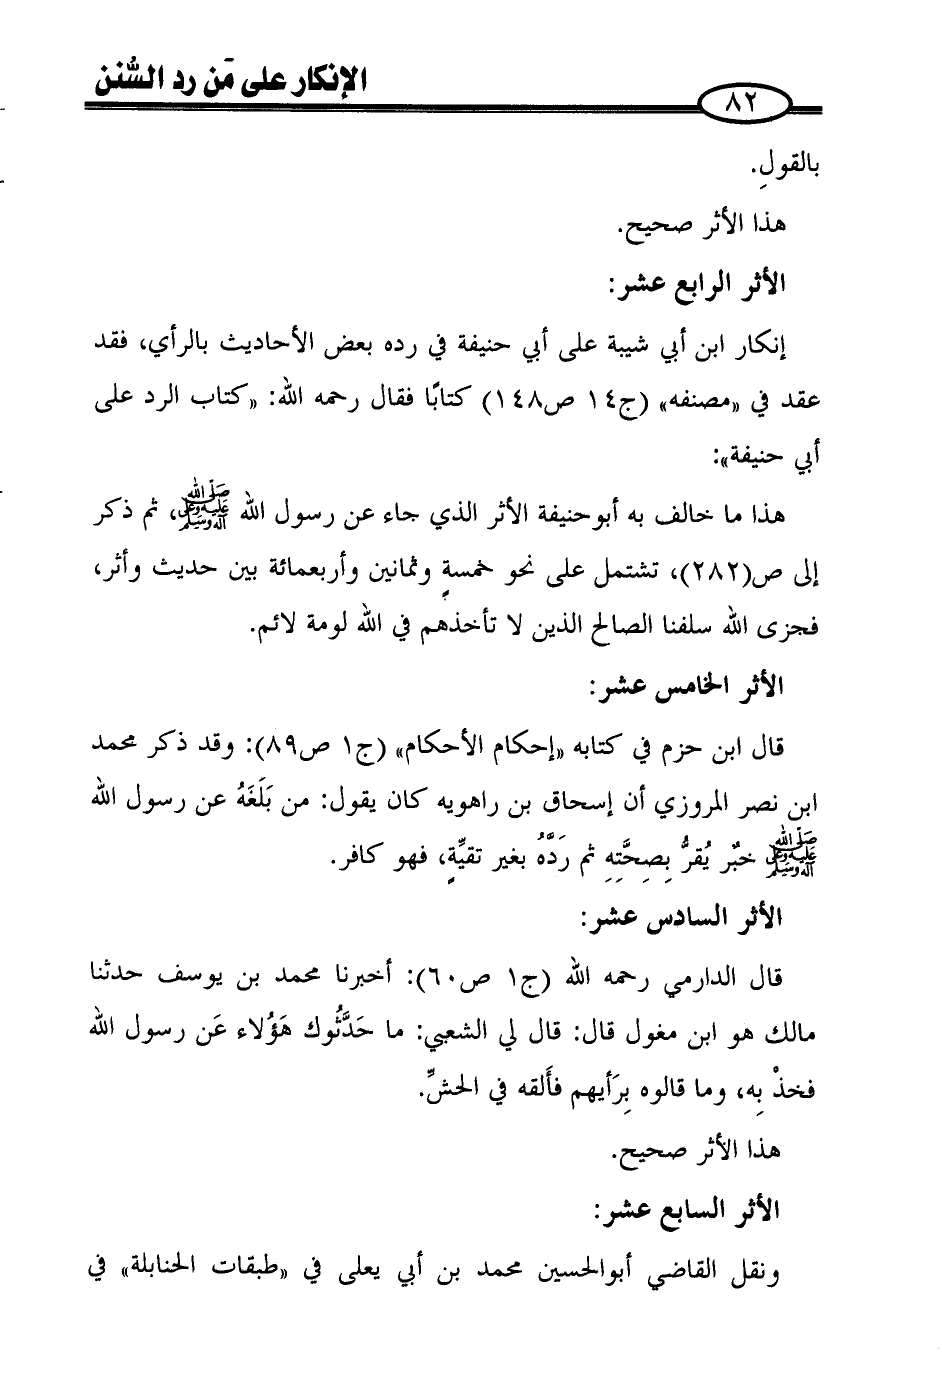 الإنكار على مَن رد السُّنن
٨٢
بالقولِ.
هذا الأثر صحيح.
الأثر الرابع عشر:
إنكار ابن أبي شيبة على أبي حنيفة في رده بعض الأحاديث بالرأي، فقد
عقد في «مصنفه» (ج١٤ ص١٤٨) كتابًا فقال رحمه الله: «كتاب الرد على
أبي حنيفة»:
هذا ما خالف به أبوحنيفة الأثر الذي جاء عن رسول الله صلى الله عليه وعلى آله وسلم، ثم ذكر
إلى ص(٢٨٢)، تشتمل على نحو خمسةٍ وثمانين وأربعمائة بين حديث وأثر،
فجزى الله سلفنا الصالح الذين لا تأخذهم في الله لومة لائم.
الأثر الخامس عشر:
قال ابن حزم في كتابه «إحكام الأحكام» (ج١ ص٨٩): وقد ذكر محمد
ابن نصر المروزي أن إسحاق بن راهويه كان يقول: من بَلَغَهُ عن رسول الله
صلى الله عليه وعلى آله وسلم خبرٌ يُقرُّ بِصِحَّتِهِ ثم رَدَّهُ بغير تقيِّةٍ، فهو كافر.
الأثر السادس عشر:
قال الدارمي رحمه الله (ج١ ص٦٠): أخبرنا محمد بن يوسف حدثنا
مالك هو ابن مغول قال: قال لي الشعبي: ما حَدَّثُوك هَؤُلاء عَن رسول الله
فخذْ بِه، وما قالوه بِرَأيهم فأَلقه في الحشِّ.
هذا الأثر صحيح.
الأثر السابع عشر:
ونقل القاضي أبوالحسين محمد بن أبي يعلى في «طبقات الحنابلة» في